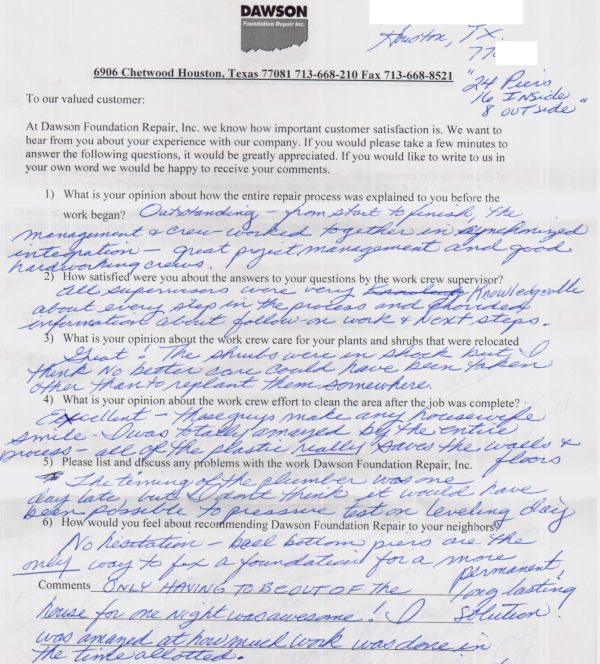 DAWSON
Foundation Repair Inc.
Houston, TX.
77
6906 Chetwood Houston, Texas 77081 713-668-210 Fax 713-668-8521
"24 Piers
16 Inside
8 outside"
To our valued customer:
At Dawson Foundation Repair, Inc. we know how important customer satisfaction is. We want to
hear from you about your experience with our company. If you would please take a few minutes to
answer the following questions, it would be greatly appreciated. If you would like to write to us in
your own word we would be happy to receive your comments.
1) What is your opinion about how the entire repair process was explained to you before the
work began? Outstanding - from start to finish, the
management & crew worked together in synchronized
integration - great project management and good
hardworking crews.
2) How satisfied were you about the answers to your questions by the work crew supervisor?
All supervisors were very Knowledgeable
about every step in the process and provided
information about follow-on work & next steps.
3) What is your opinion about the work crew care for your plants and shrubs that were relocated
Great! The shrubs were in shock but I
think no better care could have been taken
other than to replant them somewhere.
4) What is your opinion about the work crew effort to clean the area after the job was complete?
Excellent - those guys make any housewife
smile. I was totally amazed by the entire
process - all of the plastic really saves the walls &
floors
5) Please list and discuss any problems with the work Dawson Foundation Repair, Inc.
The timing of the plumber was one
day late, but I don't think it would have
been possible to pressure test on leveling day
6) How would you feel about recommending Dawson Foundation Repair to your neighbors?
No hesitation - bell bottom piers are the
only way to fix a foundation for a more
permanent,
long lasting
solution.
Comments ONLY HAVING TO BE OUT OF the
house for one night was awesome! I
was amazed at how much work was done in
the time allotted.